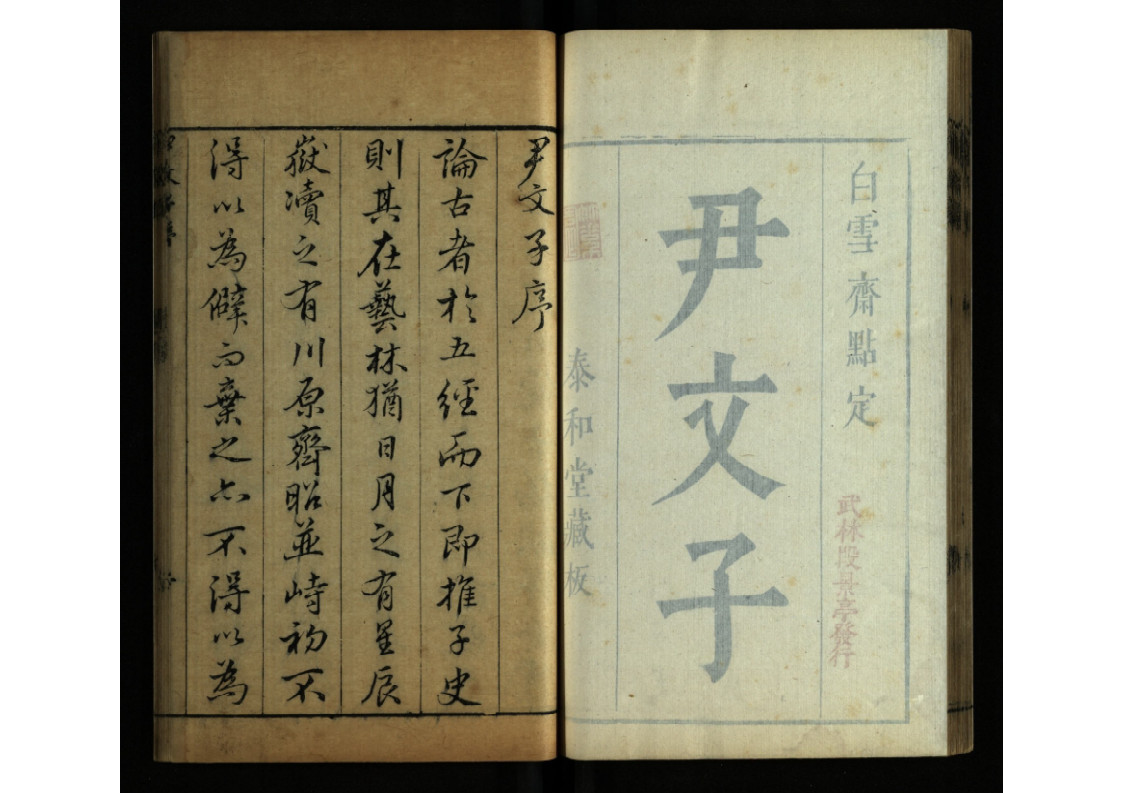 白雪齋點定
武林段景亭發行
尹文子
泰和堂藏板
尹文子序
論古者於五經而下即推子史
則其在藝林猶日月之有星辰
嶽瀆之有川原齊昭並峙初不
得以為僻而棄之亦不得以為